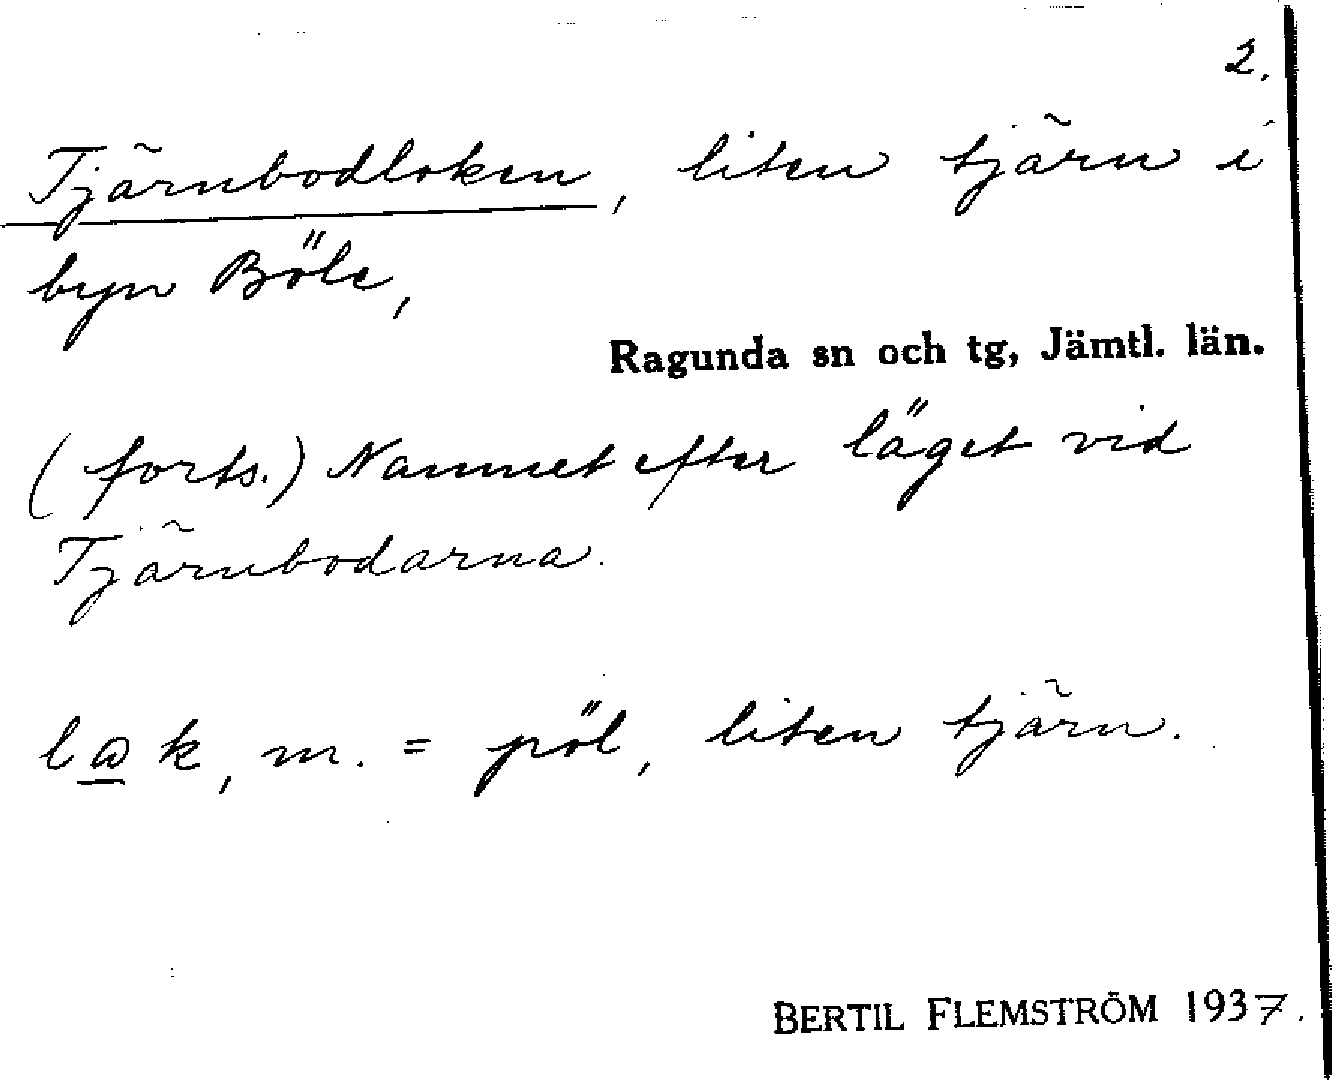 2.
Tjärnbodloken, liten tjärn i
byn Böle,
Ragunda sn och tg, Jämtl. län.
(forts.) Namnet efter läget vid
Tjärnbodarna.
lωk, m. = pöl, liten tjärn.
BERTIL FLEMSTRÖM 1937.